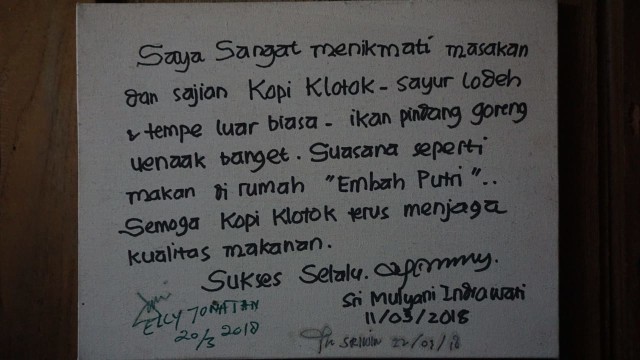 Saya Sangat menikmati masakan
dan sajian Kopi Klotok - sayur lodeh
& tempe luar biasa - ikan pindang goreng
uenaak banget. Suasana seperti
makan di rumah "Embah Putri"..
Semoga Kopi Klotok terus menjaga
kualitas makanan.
Sukses Selalu.
Sri Mulyani Indrawati
11/03/2018
ELLY JONATAN
20/3 2018
22/03/18